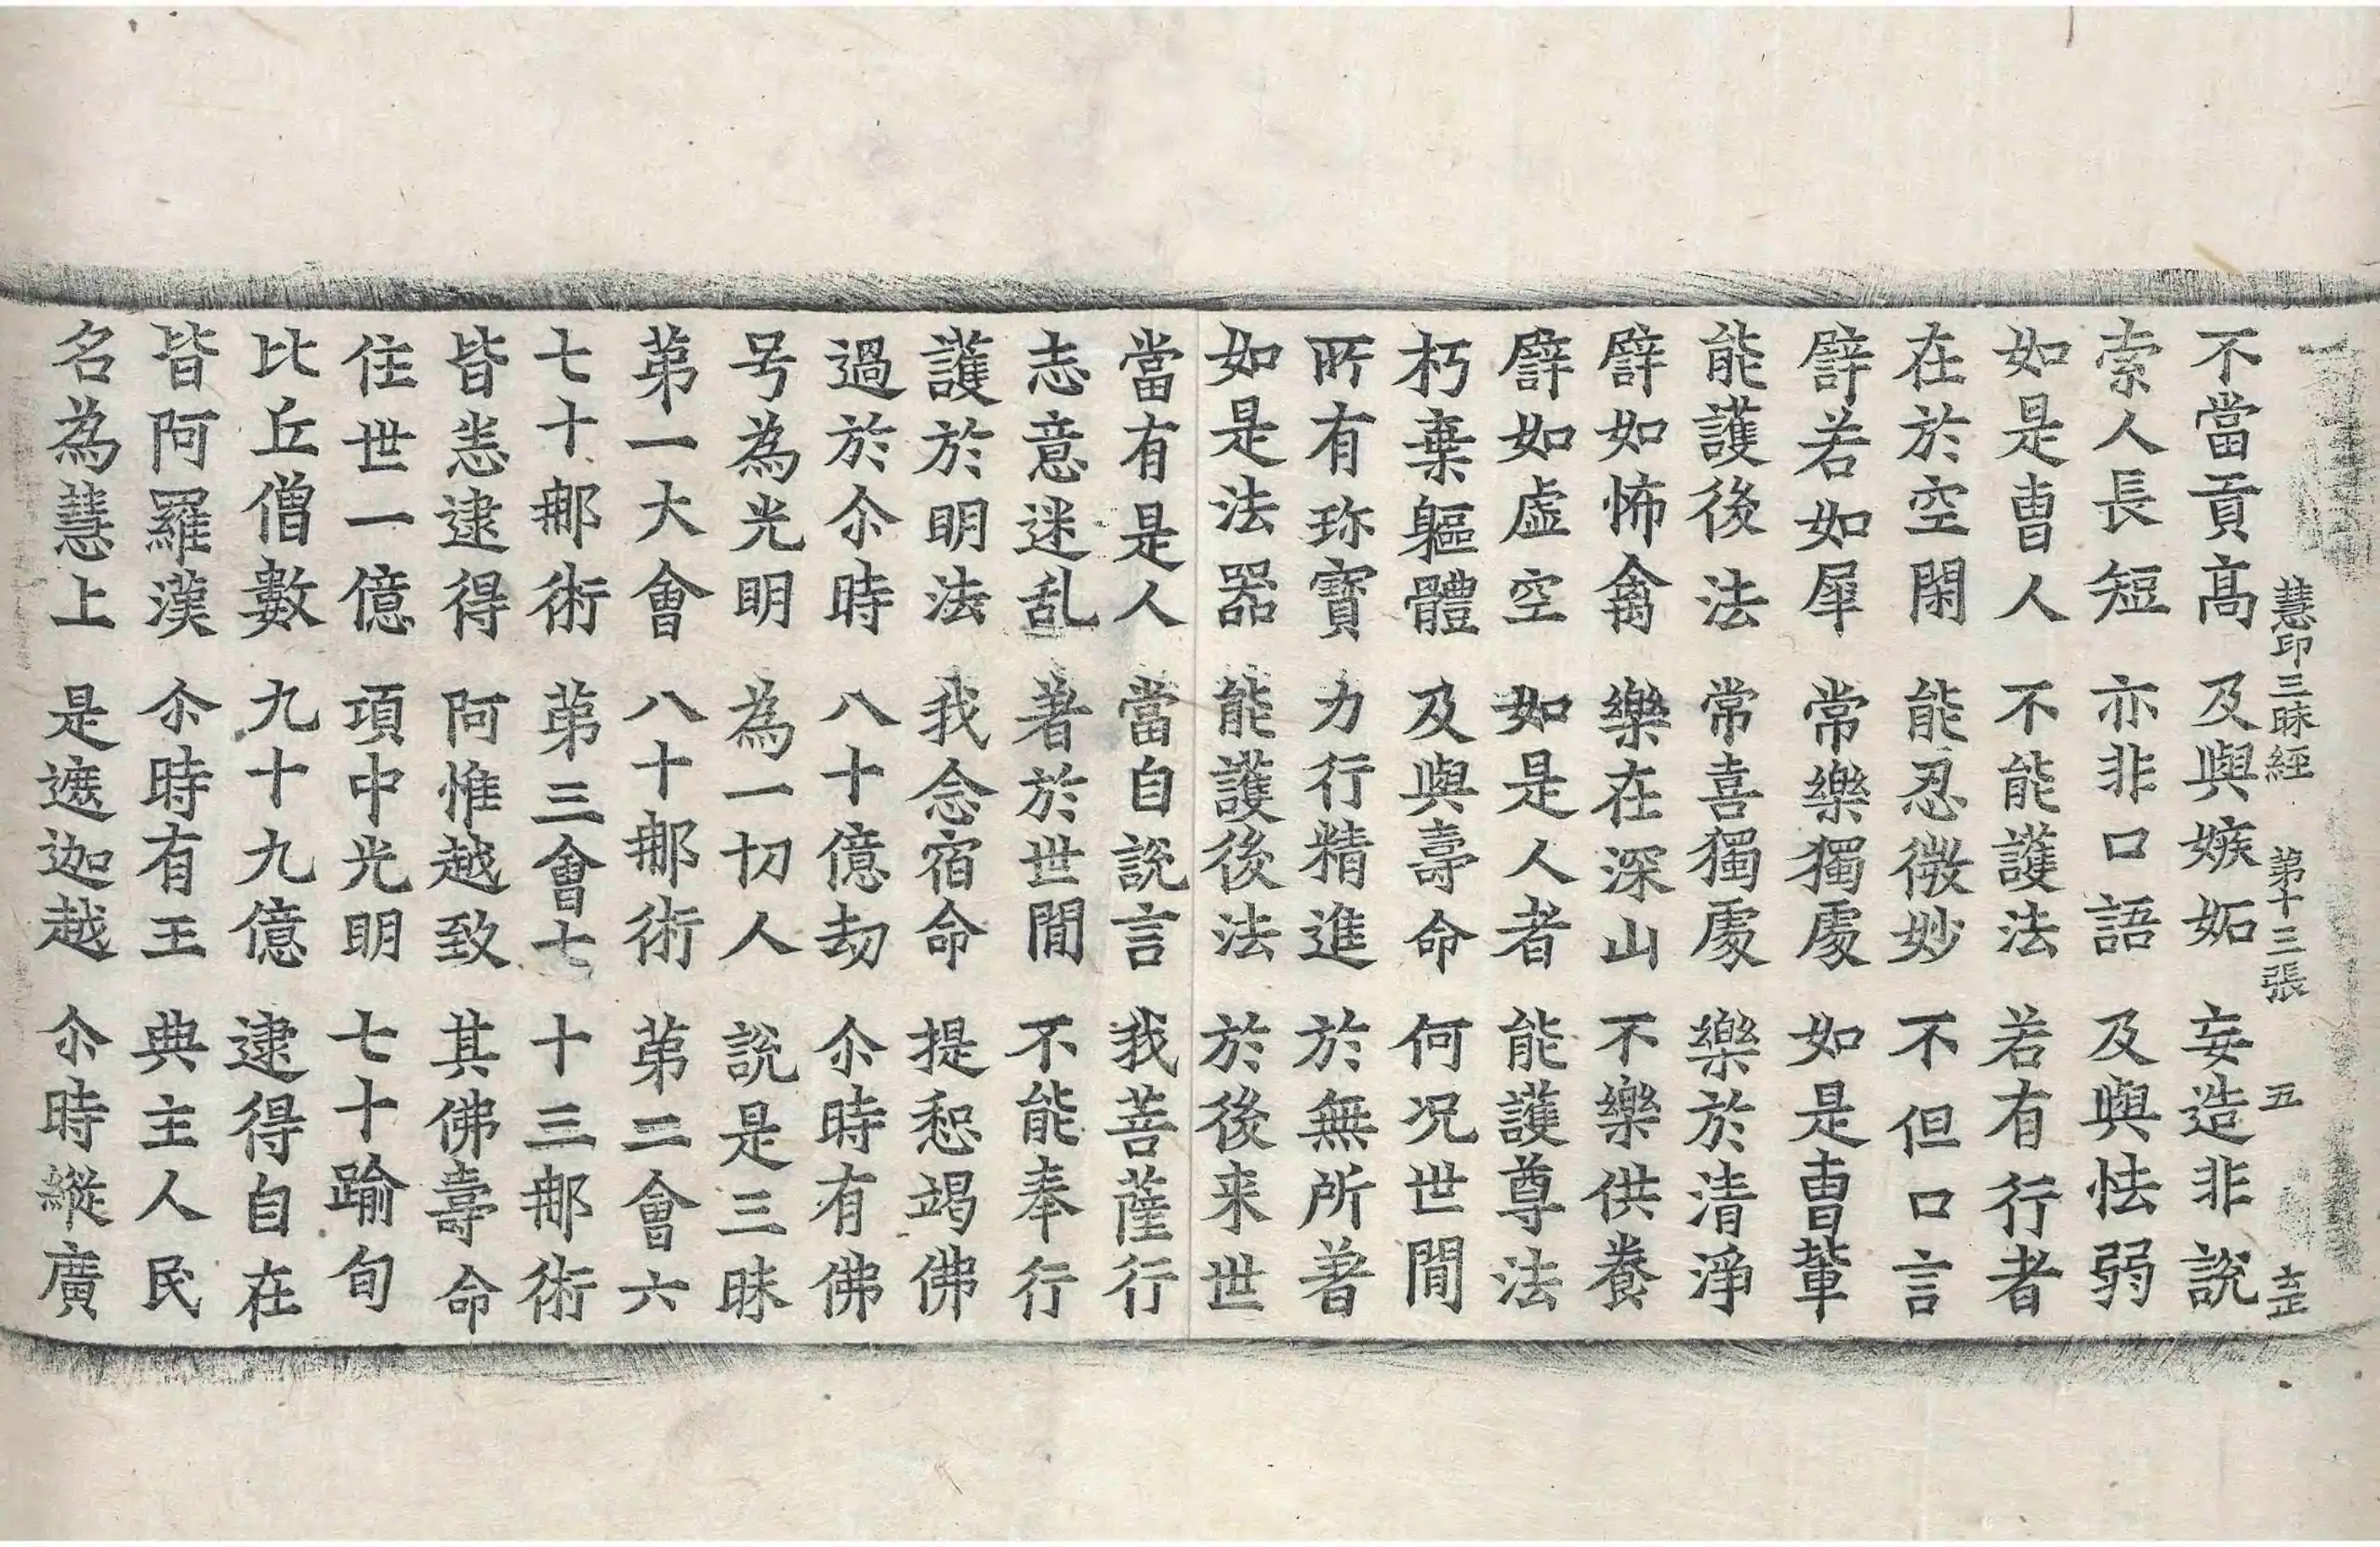 慧印三昧經 第十三張 五
不當貢高 及與嫉妬 妄造非說
索人長短 亦非口語 及與怯弱
如是曺人 不能護法 若有行者
在於空閑 能忍微妙 不但口言
譬若如犀 常樂獨處 如是曺輩
能護後法 常喜獨處 樂於清淨
譬如怖禽 樂在深山 不樂供養
譬如虛空 如是人者 能護尊法
朽棄軀體 及與壽命 何况世間
所有珎寶 力行精進 於無所著
如是法器 能護後法 於後来世
當有是人 當自說言 我菩薩行
志意迷乱 著於世間 不能奉行
護於明法 我念宿命 提惒竭佛
過於尒時 八十億劫 尒時有佛
号為光明 為一切人 說是三昧
苐一大會 八十那術 苐二會六
七十那術 苐三會七 十三那術
皆悉逮得 阿惟越致 其佛壽命
住世一億 項中光明 七十踰旬
比丘僧數 九十九億 逮得自在
皆阿羅漢 尒時有王 典主人民
名為慧上 是遮迦越 尒時縱廣